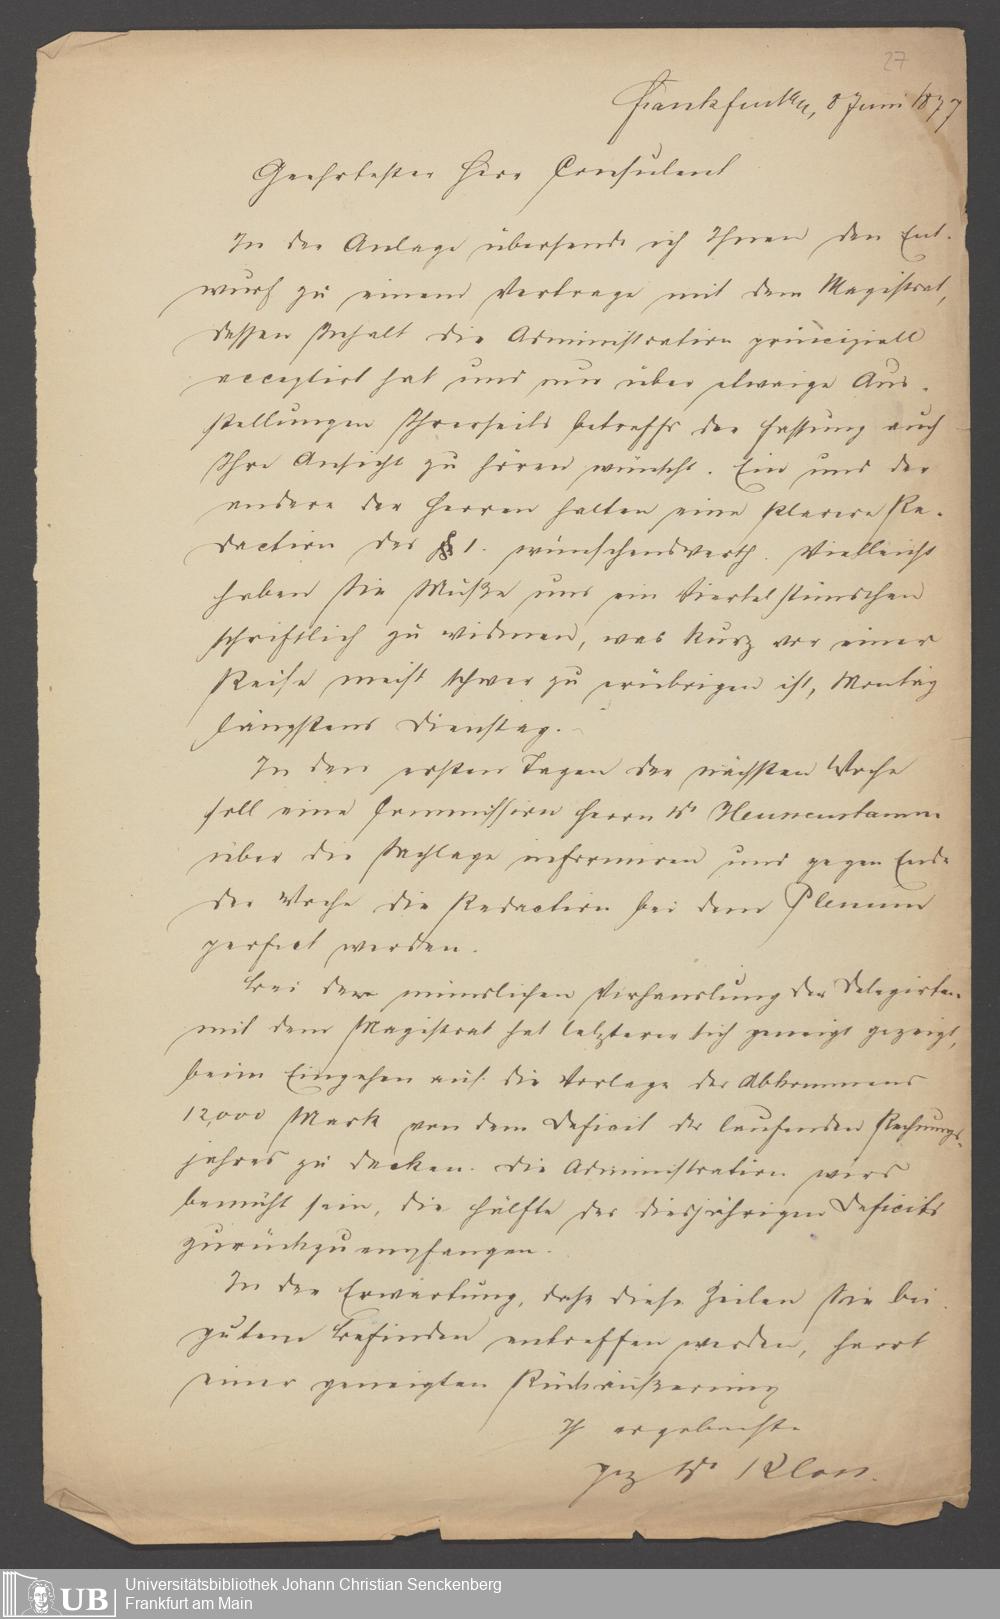 27
Frankfurt a/M, 8 Juni 1877
Geehrtester Herr Consulent
In der Anlage übersende ich Ihnen den Ent-
wurf zu einem Vertrage mit dem Magistrat,
dessen Inhalt die Administration principiell
acceptirt hat und nur über etwaige Aus-
stellungen Ihrerseits betreffs der Fassung auch
Ihre Ansicht zu hören wünscht. Ein und der
andere der Herren halten eine klarere Re-
daction des § 1. wünschenswerth. Vielleicht
haben Sie Muße uns ein Viertelstündchen
schriftlich zu widmen, was kurz vor einer
Reise meist schwer zu erübrigen ist, Montag
längstens Dienstag.
In den ersten Tagen der nächsten Woche
soll eine Commission Herrn Dr
über die Sachlage informiren und gegen Ende
der Woche die Redaction bei dem Plenum
perfect werden.
Bei der mündlichen Verhandlung der Delegirten
mit dem Magistrat hat letzterer sich geneigt gezeigt,
beim Eingehen auf die Vorlage des Abkommens
12,000 Mark von dem Deficit des laufenden Rechnungs-
jahres zu decken. Die Administration wird
bemüht sein, die Hälfte des diesjährigen Deficits
zurückzuempfangen.
In der Erwartung, daß diese Zeilen Sie bei
gutem Befinden antreffen werden, harrt
einer geneigten Rückäußerung
Ihr ergebenster
gez Dr
UB
Universitätsbibliothek Johann Christian Senckenberg
Frankfurt am Main